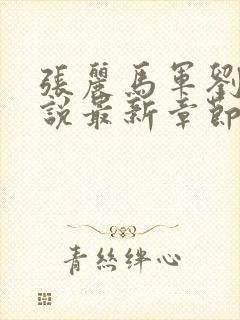 張麗馬軍劉
說最新章節
青絲絆心